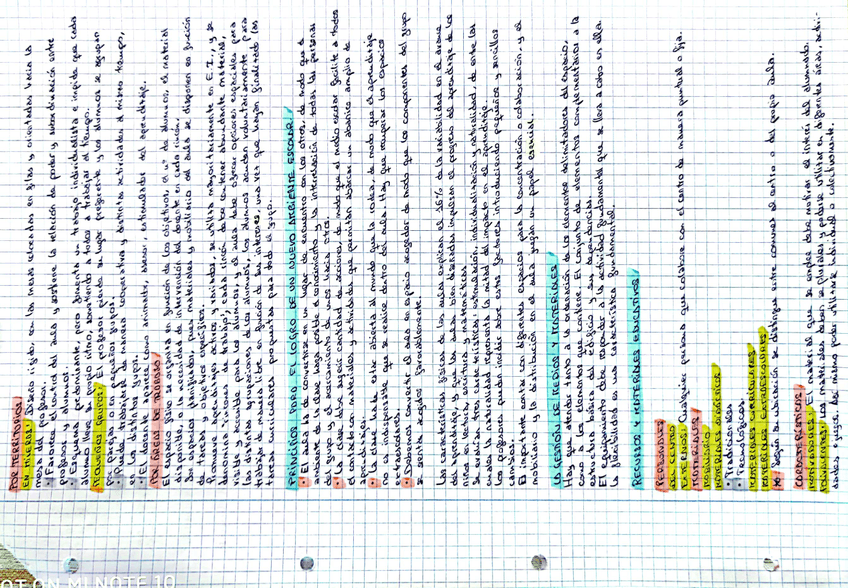 POR TERRITORIOS
EN HILERAS: Diseño rígido, con las mesas colocadas en filas y orientadas hacia la
mesa del profesor.
· Favorece el control del aula y sostiene la relación de poder y subordinación entre
profesor y alumnos.
· Esquema predominante, pero fomenta un trabajo individualista e impide que cada
alumno lleve su propio ritmo, sometiendo a todos a trabajar al tiempo.
PEQUEÑOS GRUPOS: El profesor pierde su lugar preferente y los alumnos se agrupan
por parejas o en pequeños grupos.
· Puede trabajarse de manera cooperativa y distintas actividades al mismo tiempo,
en los distintos grupos.
· El docente aparece como animador, asesor, estimulador del aprendizaje.
POR ÁREAS DE TRABAJO
El espacio físico se organiza en función de los objetivos, el nº de alumnos, el material
disponible y la necesidad de intervención del docente en cada rincón.
Son espacios planificados, pues materiales y mobiliario del aula se disponen en función
de tareas y objetivos específicos.
Promueve aprendizajes activos y variados, se utiliza mayoritariamente en E.I., y se
denomina "rincones de trabajo"; cada rincón debe contener abundante material,
visible y accesible para los alumnos, y el aula debe ofrecer opciones espaciales para
las distintas agrupaciones de los alumnos, los alumnos acuden voluntariamente para
trabajar de manera libre en función de sus intereses, una vez que hayan finalizado las
tareas curriculares propuestas para todo el grupo.
PRINCIPIOS PARA EL LOGRO DE UN NUEVO AMBIENTE ESCOLAR
· El aula ha de convertirse en un lugar de encuentro con los otros, de modo que el
ambiente de la clase haga posible el conocimiento y la interrelación de todas las personas
del grupo y el acercamiento de unos hacia otros.
· La clase debe sugerir gran cantidad de acciones, de modo que el medio escolar facilite a todos
el contacto con materiales y actividades que permitan abarcar un abanico amplio de
aprendizajes.
· La clase ha de estar abierta al mundo que la rodea, de modo que el aprendizaje
no es indispensable que se realice dentro del aula. Hay que recuperar los espacios
extraescolares.
· Debemos convertir el aula en espacio acogedor de modo que los componentes del grupo
se sientan acogidos favorablemente.
Las características físicas de las aulas explican el 16% de la variabilidad en el avance
del aprendizaje, y que las aulas bien diseñadas impulsan el progreso de aprendizaje de los
niños en lectura, escritura y matemáticas.
Se evalúan tres características: estimulación, individualización y naturalidad, de entre las
cuales la naturalidad representa la mitad del impacto en el aprendizaje.
Los profesores pueden incidir sobre estos factores introduciendo pequeños y sencillos
cambios.
Es importante contar con diferentes espacios para la concentración o colaboración, y el
mobiliario y la distribución en el aula juegan un papel esencial.
LA GESTIÓN DE MEDIOS Y MATERIALES
Hay que atender tanto a la ordenación de los elementos delimitadores del espacio,
como a los elementos que contiene. El conjunto de elementos complementarios a la
estructura básica del edificio y sus dependencias.
El equipamiento debe responder a la actividad fundamental que se lleva a cabo en ella.
La flexibilidad es característica fundamental.
RECURSOS Y MATERIALES EDUCATIVOS
PERSONALES
EXTERNOS: Cualquier persona que colabore con el centro de manera puntual o fija.
MATERIALES
MOBILIARIO
· Tradicionales
· Tecnológicos
MATERIALES CURRICULARES
MATERIALES EXTRAESCOLARES
* Según su ubicación se distingue entre comunes al centro o del propio aula.
CARACTERÍSTICAS
El material que se emplee debe motivar el interés del alumnado.
POLIVALENTES: Los materiales deben ser plurales y poderse utilizar en diferentes áreas, acti-